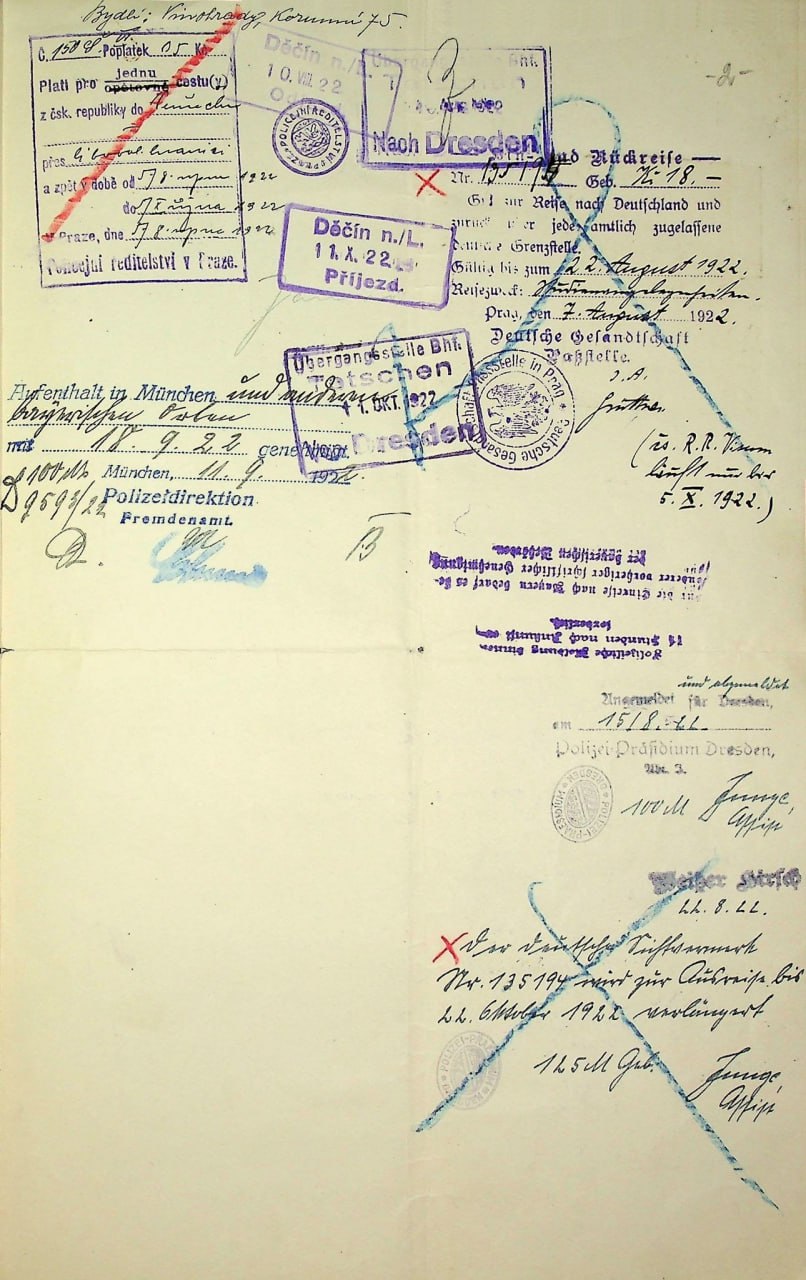 Bydlí: Vinohrady, Korunní 75.
Poplatek 05 Kč
Platí pro jednu
opětovné cestu(y)
z čsk. republiky do Německa
přes
a zpět v době od 8. srpna 1922
do října 1922
V Praze, dne 8. srpna 1922
Policejní ředitelství v Praze.
Děčín n./L.
10. VIII. 22
POLICEJNÍ ŘEDITELSTVÍ
Übergangsstelle Bhf.
Nach Dresden
-2-
Děčín n./L.
11. X. 22
Příjezd.
und Rückreise —
Nr. 135194 Geb. Kč 18.-
Gilt zur Reise nach Deutschland und
zurück über jede amtlich zugelassene
deutsche Grenzstelle.
Gültig bis zum 22. August 1922.
Reisezweck: Studienangelegenheiten.
Prag, den 7. August 1922.
Deutsche Gesandtschaft
Paßstelle.
I. A.
läuft nur bis
5. X. 1922.)
Deutsche Gesandtschaft Passstelle in Prag
Übergangsstelle Bhf.
Tetschen
11. OKT. 1922
Nach Dresden
Aufenthalt in München und anderen
bayerischen Orten
mit 18. 9. 22 genehmigt.
München, 11. 9. 1922.
D 100 M
9593/22
Polizeidirektion
Fremdenamt.
D.
B
Für die Einreise nach Bayern bedarf es be-
sonderer vorheriger schriftlicher Genehmigung
der bayerischen Behörden.
Polizeiliche Meldung binnen
Stunden nach Ankunft
erforderlich.
und abgemeldet
Angemeldet für Dresden,
am 15/8. 22
Polizei-Präsidium Dresden,
Abt. J.
POLIZEI-PRÄSIDIUM DRESDEN
100 M Junge,
Assist
Weißer Hirsch
22. 8. 22.
X Der deutsche Sichtvermerk
Nr. 135194 wird zur Ausreise bis
22. Oktober 1922 verlängert
125 M Geb. Junge,
Assist